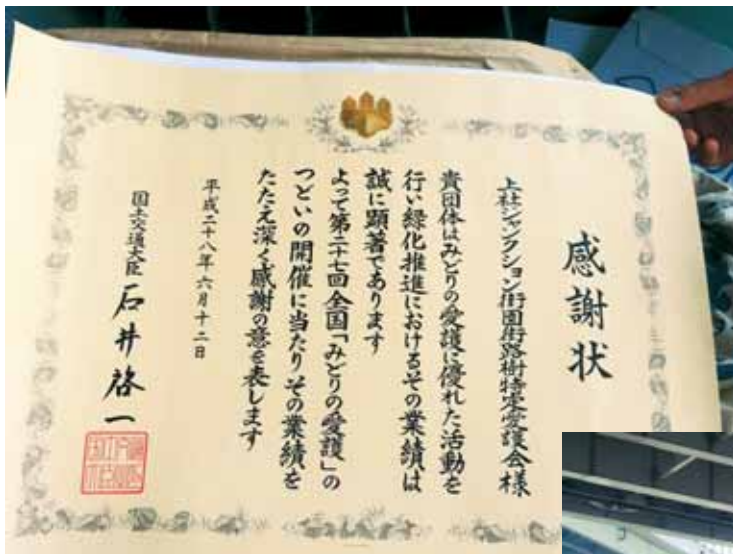 感謝状
上社ジャンクション街園街路樹特定愛護会様
貴団体はみどりの愛護に優れた活動を
行い緑化推進におけるその業績は
誠に顕著であります
よって第二十七回全国「みどりの愛護」の
つどいの開催に当たりその業績を
たたえ深く感謝の意を表します
平成二十八年六月十二日
国土交通大臣 石井啓一